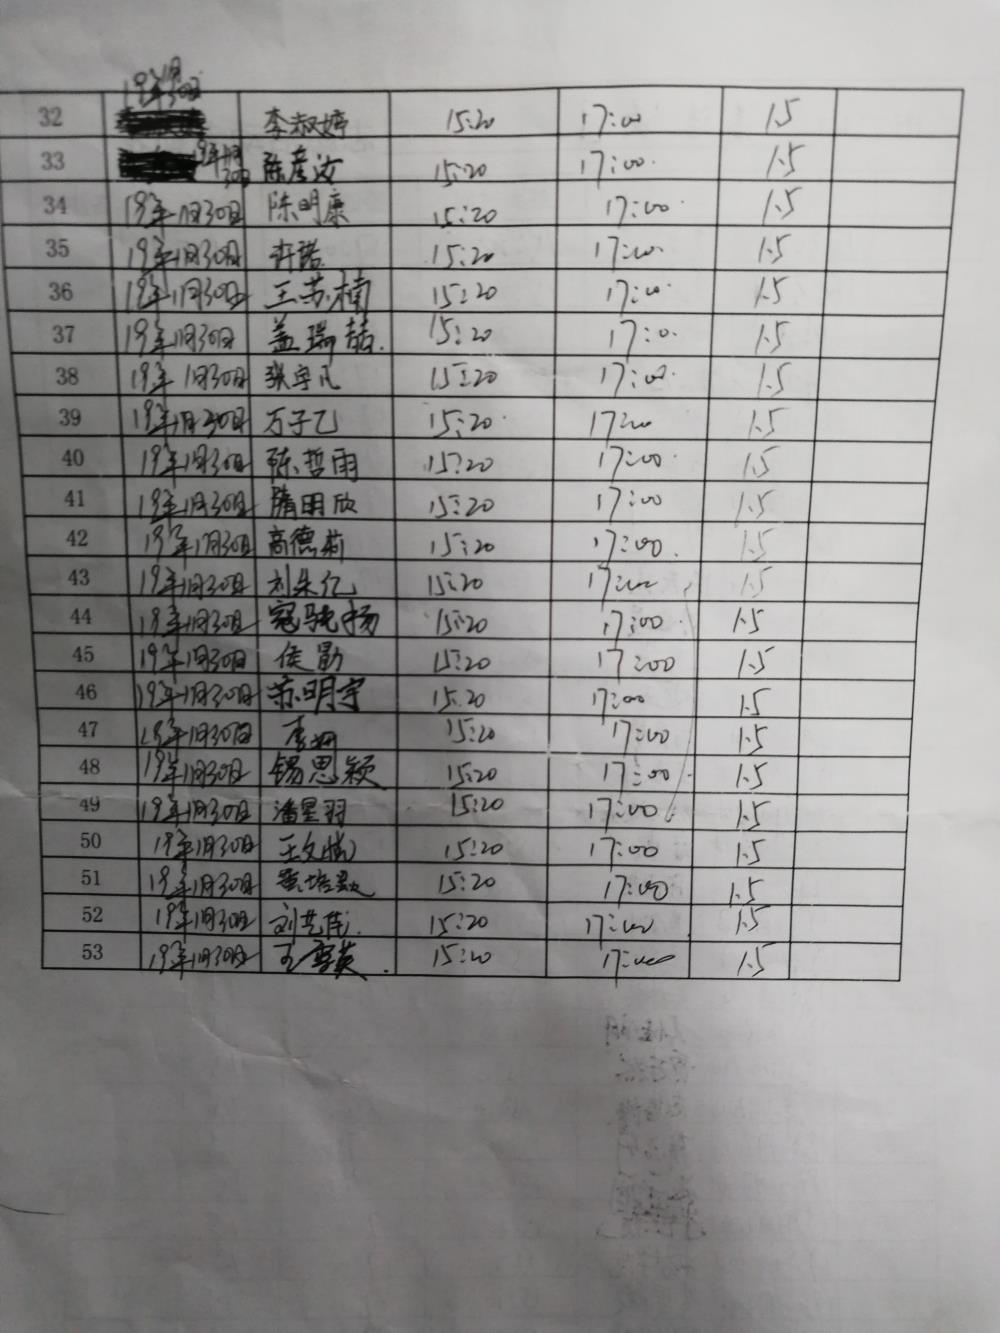 32 19年1月30日 李叔婷 15:20 17:00 1.5
33 19年1月30日 陈彦汝 15:20 17:00 1.5
34 19年1月30日 陈明康 15:20 17:00 1.5
35 19年1月30日 许诺 15:20 17:00 1.5
36 19年1月30日 王苏楠 15:20 17:00 1.5
37 19年1月30日 盖瑞喆 15:20 17:00 1.5
38 19年1月30日 张宇凡 15:20 17:00 1.5
39 19年1月30日 万子乙 15:20 17:00 1.5
40 19年1月30日 陈哲雨 15:20 17:00 1.5
41 19年1月30日 隋明欣 15:20 17:00 1.5
42 19年1月30日 高德莉 15:20 17:00 1.5
43 19年1月30日 刘朱亿 15:20 17:00 1.5
44 19年1月30日 寇驰扬 15:20 17:00 1.5
45 19年1月30日 侯勋 15:20 17:00 1.5
46 19年1月30日 苏明宇 15:20 17:00 1.5
47 19年1月30日 李姗 15:20 17:00 1.5
48 19年1月30日 锡思颖 15:20 17:00 1.5
49 19年1月30日 潘星羽 15:20 17:00 1.5
50 19年1月30日 王文 15:20 17:00 1.5
51 19年1月30日 15:20 17:00 1.5
52 19年1月30日 刘艺 15:20 17:00 1.5
53 19年1月30日 王雪英 15:20 17:00 1.5